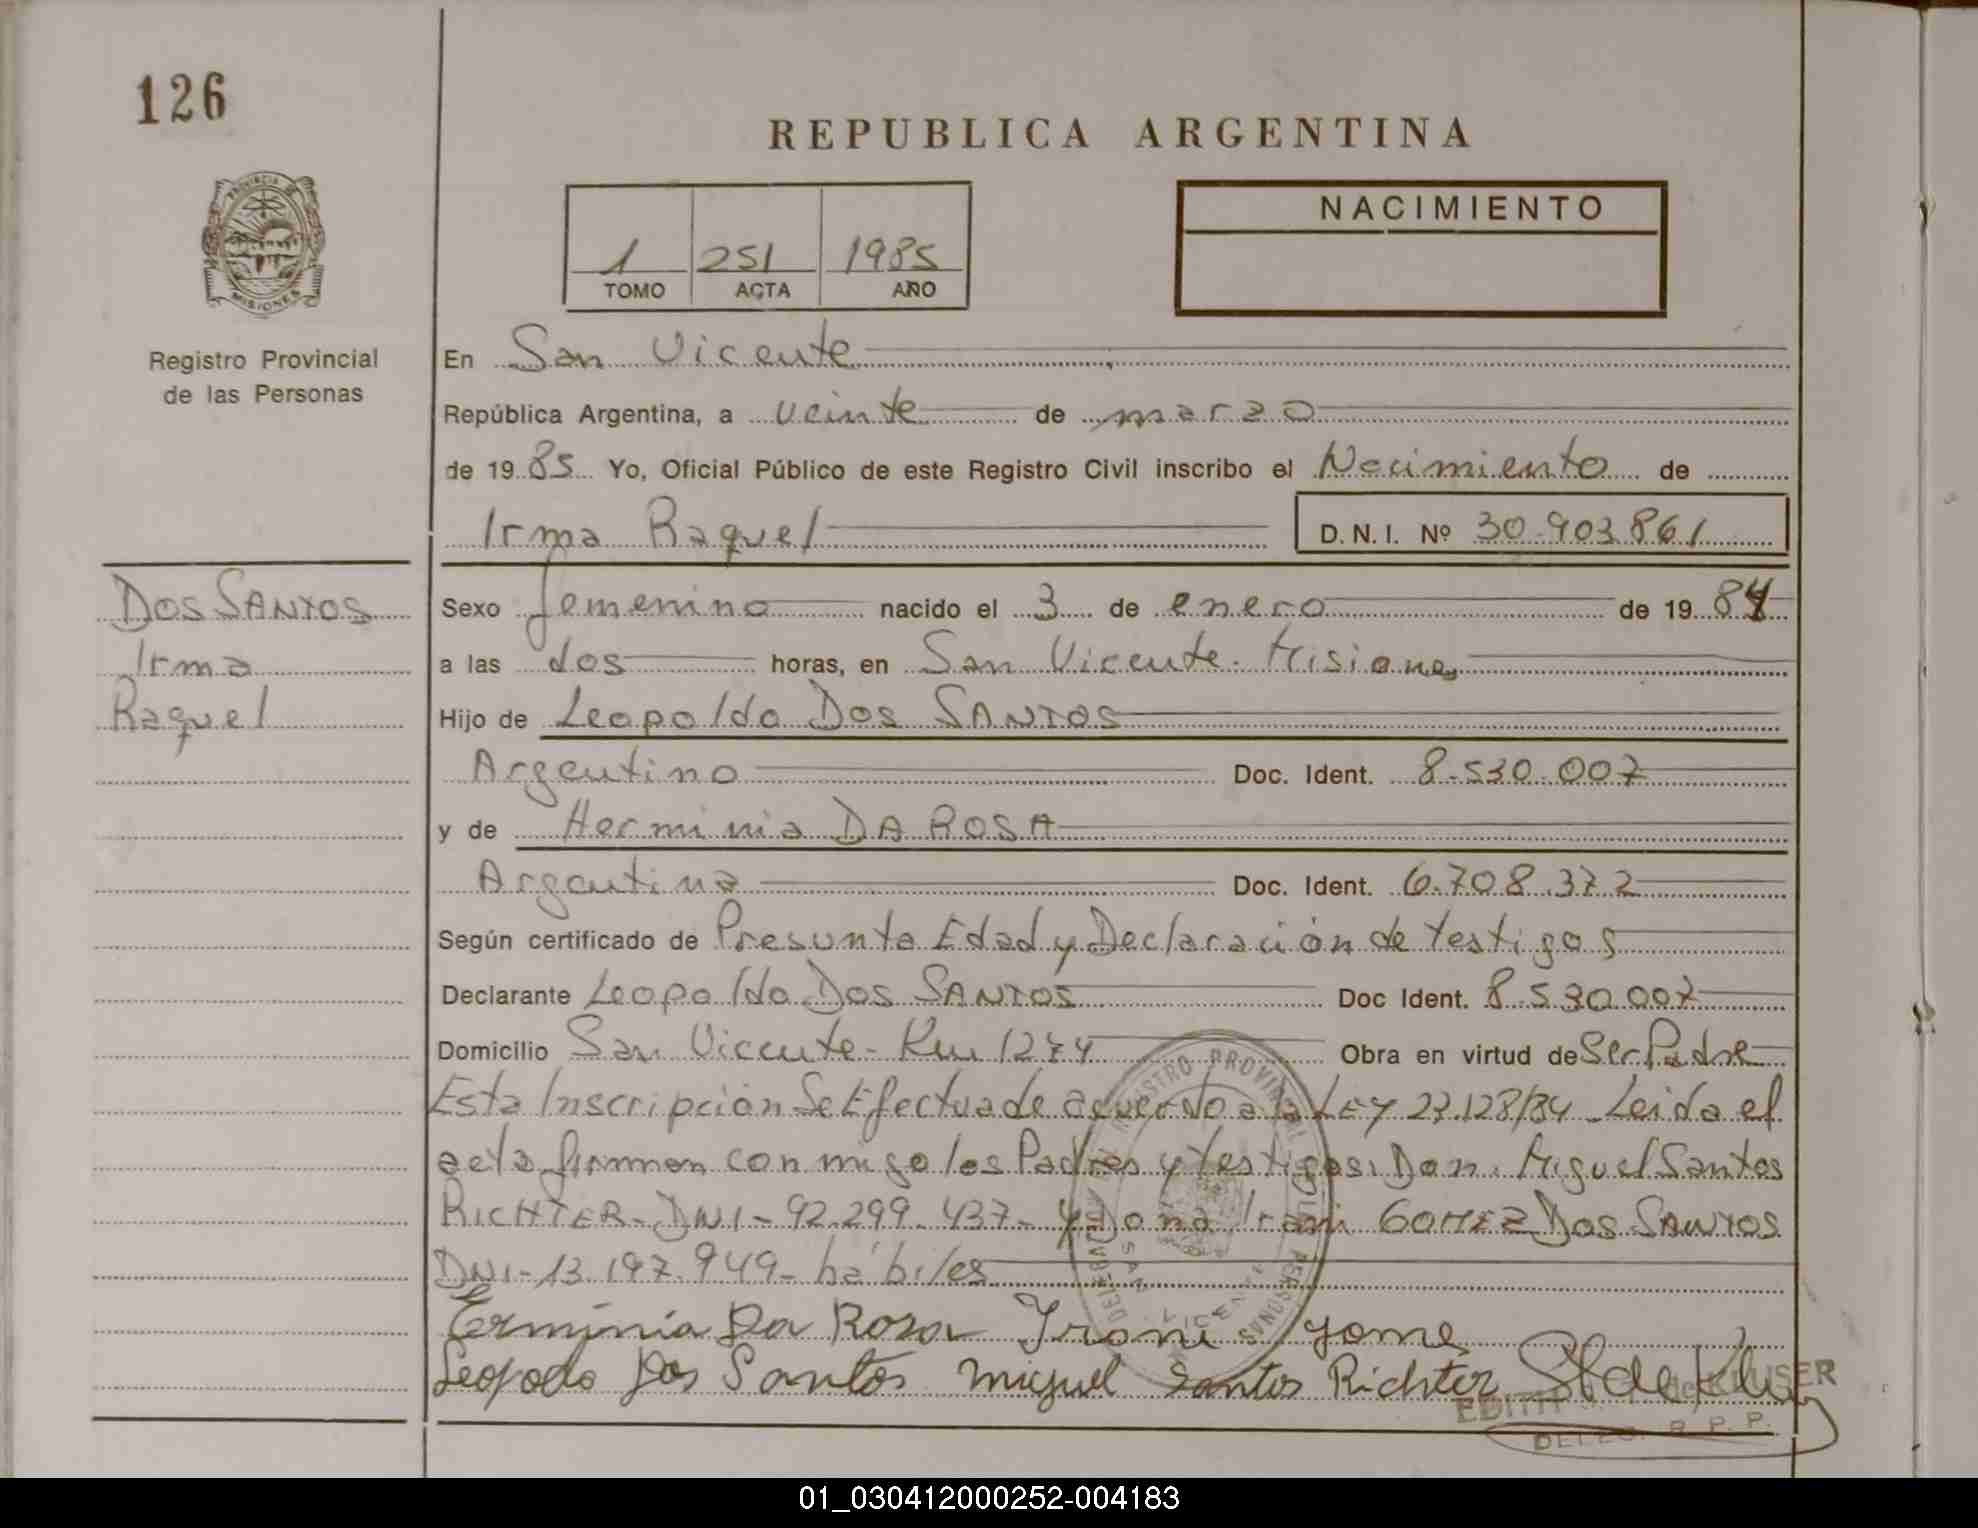 126
REPUBLICA ARGENTINA
PROVINCIA DE
MISIONES
NACIMIENTO
1 251 1985
TOMO ACTA AÑO
Registro Provincial
de las Personas
En San Vicente
República Argentina, a veinte de marzo
de 19 85 Yo, Oficial Público de este Registro Civil inscribo el Nacimiento de
Irma Raquel D.N.I. Nº 30.903.861
DOS SANTOS
Irma
Raquel
Sexo femenino nacido el 3 de enero de 19 84
a las dos horas, en San Vicente. Misiones
Hijo de Leopoldo DOS SANTOS
Argentino Doc. Ident. 8.530.007
y de Herminia DA ROSA
Argentina Doc. Ident. 6.708.372
Según certificado de Presunta Edad y Declaración de testigos
Declarante Leopoldo DOS SANTOS Doc Ident. 8.530.007
Domicilio San Vicente - Km 1274 Obra en virtud de Ser Padre
Esta Inscripción Se Efectua de acuerdo a la LEY 23.128/84 - Leida el
acta firman con migo los Padres y testigos. Don. Miguel Santos
RICHTER - DNI - 92.299.437 - y Dona Irani GOMEZ Dos SANTOS
DNI - 13.197.949 - hábiles
Erminia Da Rosa Irani gome
Leopodo Dos Santos Miguel Santos Richter
EDITH de KLUSER
DELEG. R. P. P.
01_030412000252-004183